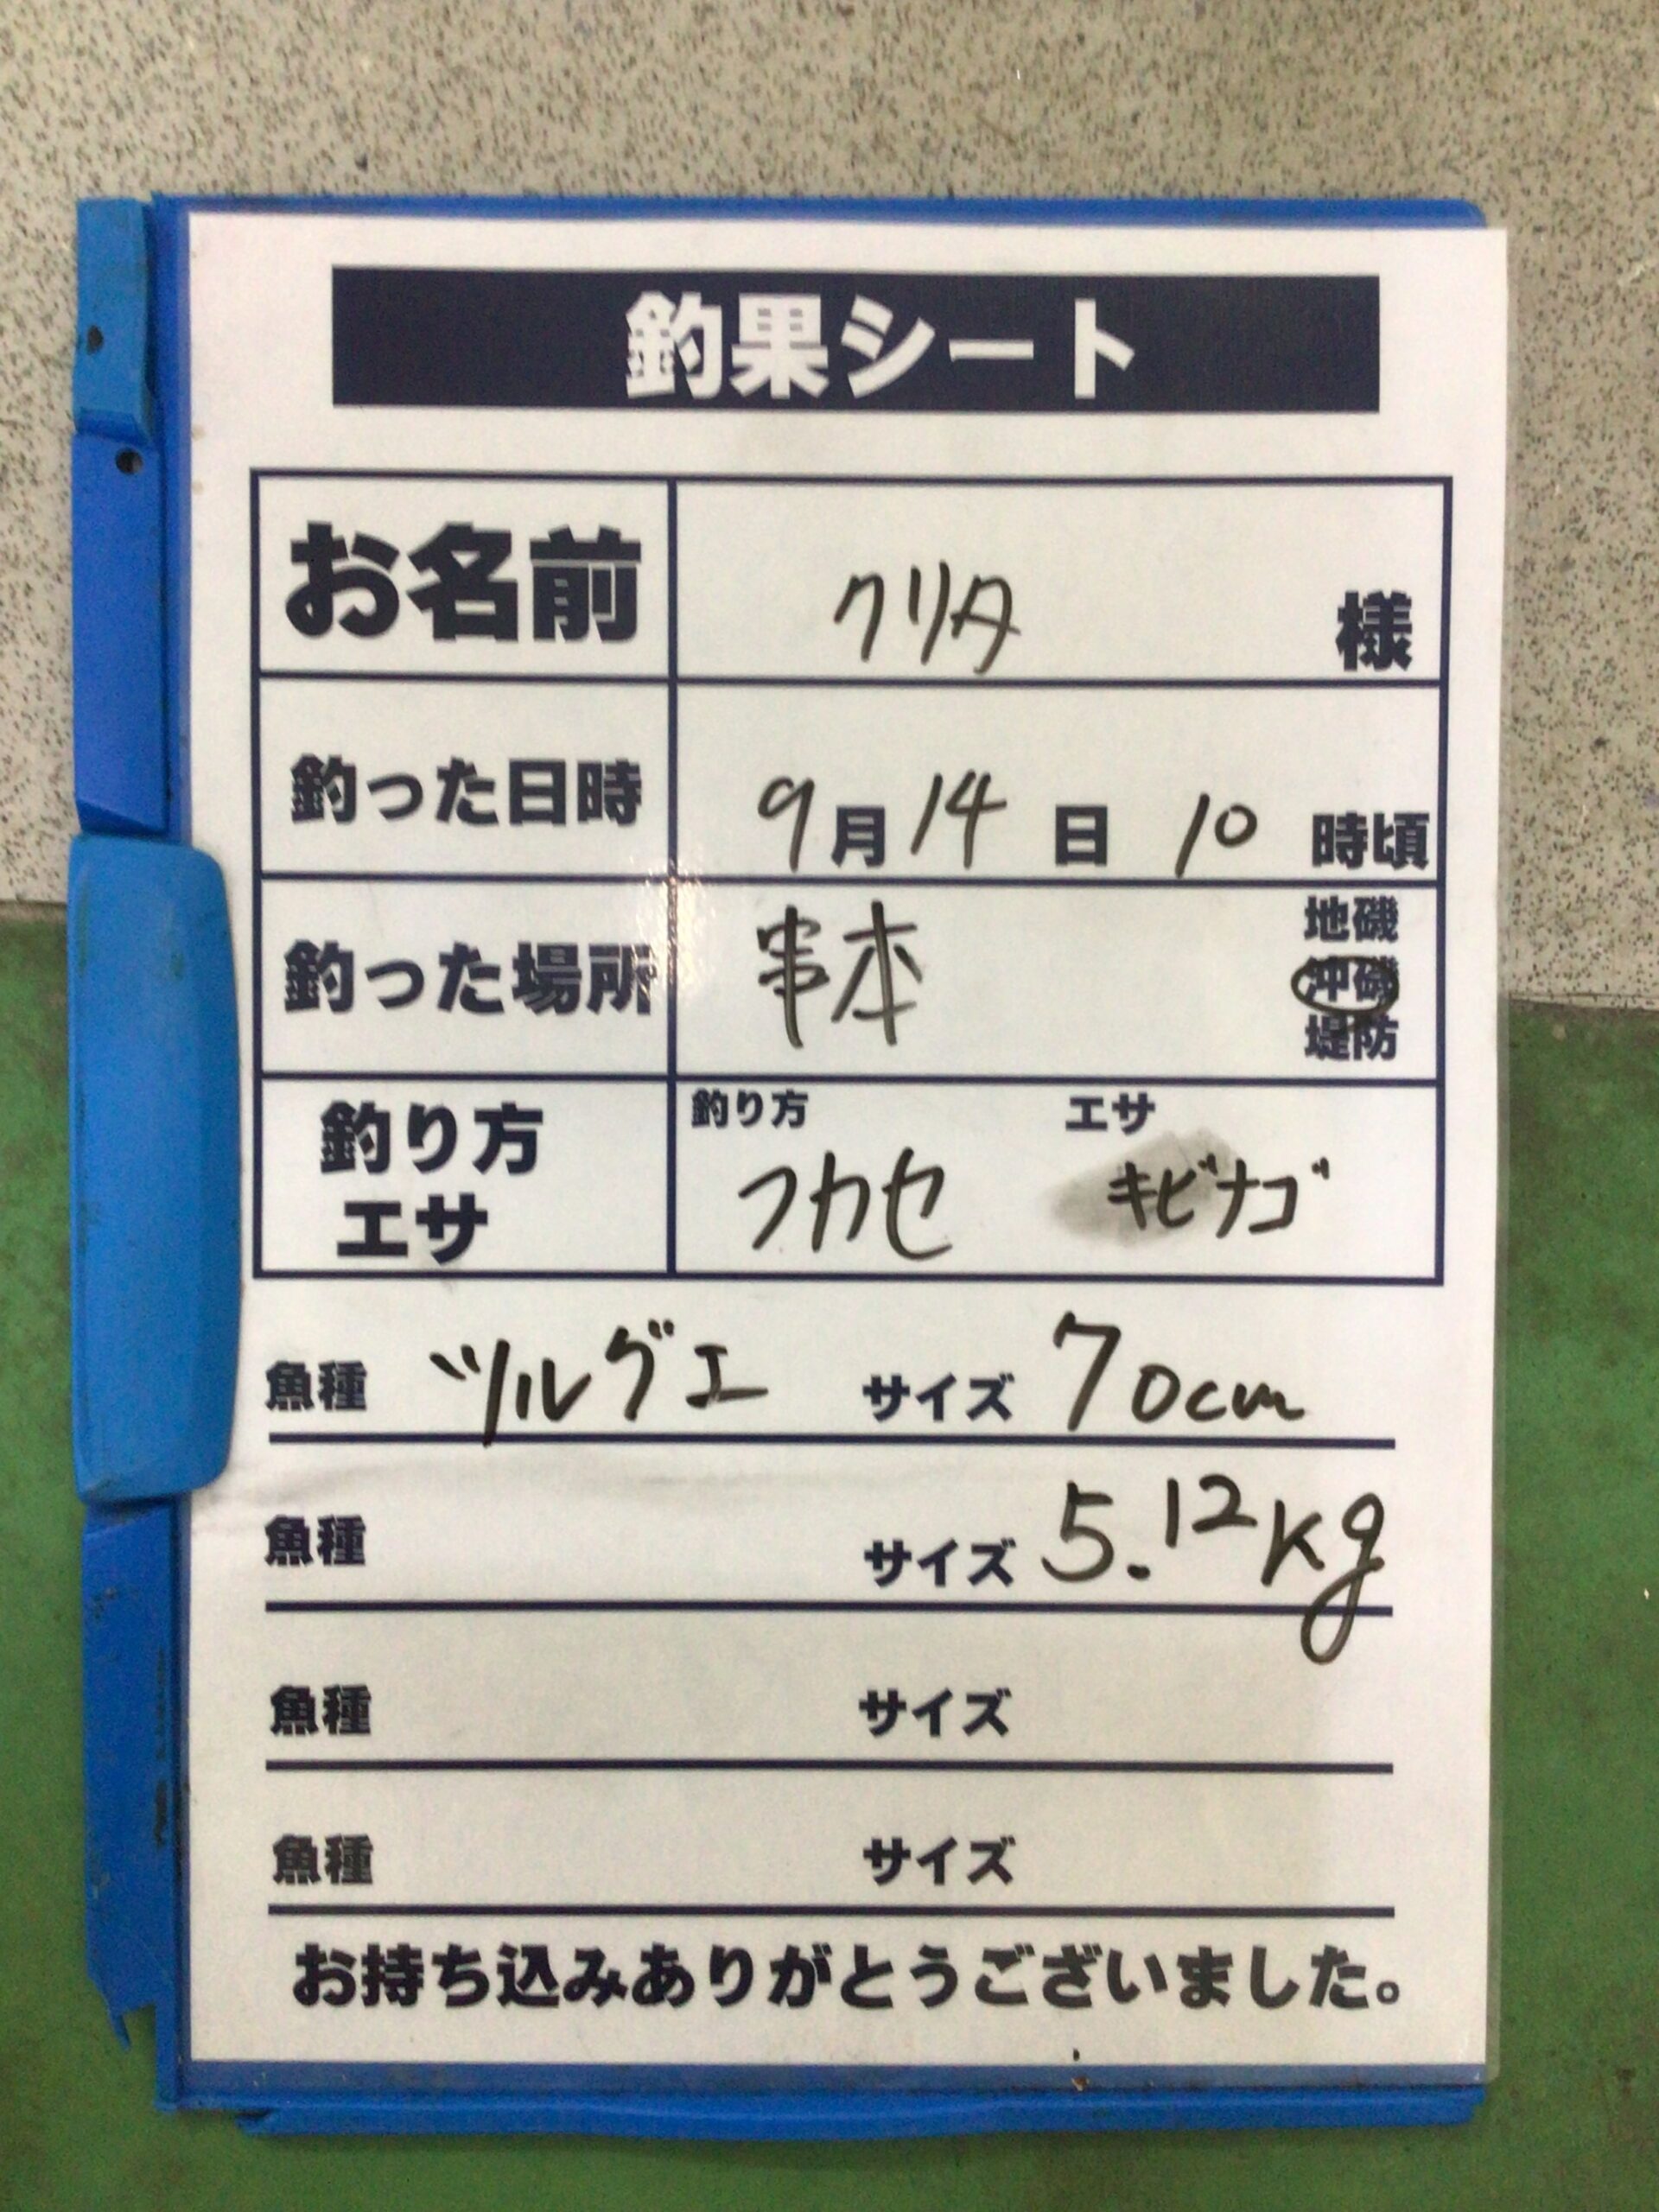 釣果シート
お名前 クリタ 様
釣った日時 9月14日 10時頃
釣った場所 串本 地磯
沖磯
堤防
釣り方 エサ
釣り方
エサ
フカセ キビナゴ
魚種 ツルグエ サイズ 70cm
魚種 サイズ 5.12kg
魚種 サイズ
魚種 サイズ
お持ち込みありがとうございました。